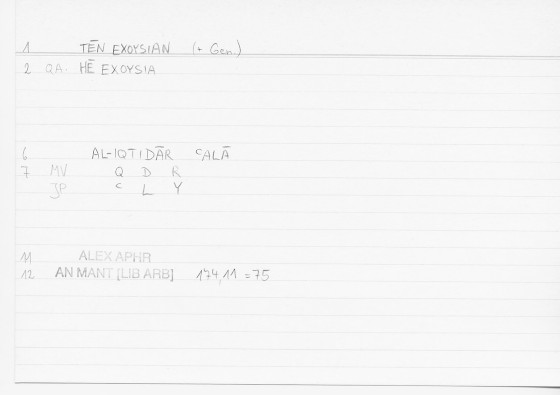 1 TĒN EXOYSIAN (+ Gen.)
2 QA. HĒ EXOYSIA
6 AL-IQTIDĀR ʿALĀ
7 MV Q D R
JP ʿ L Y
11 ALEX APHR
12 AN MANT [LIB ARB] 174,11 = 75